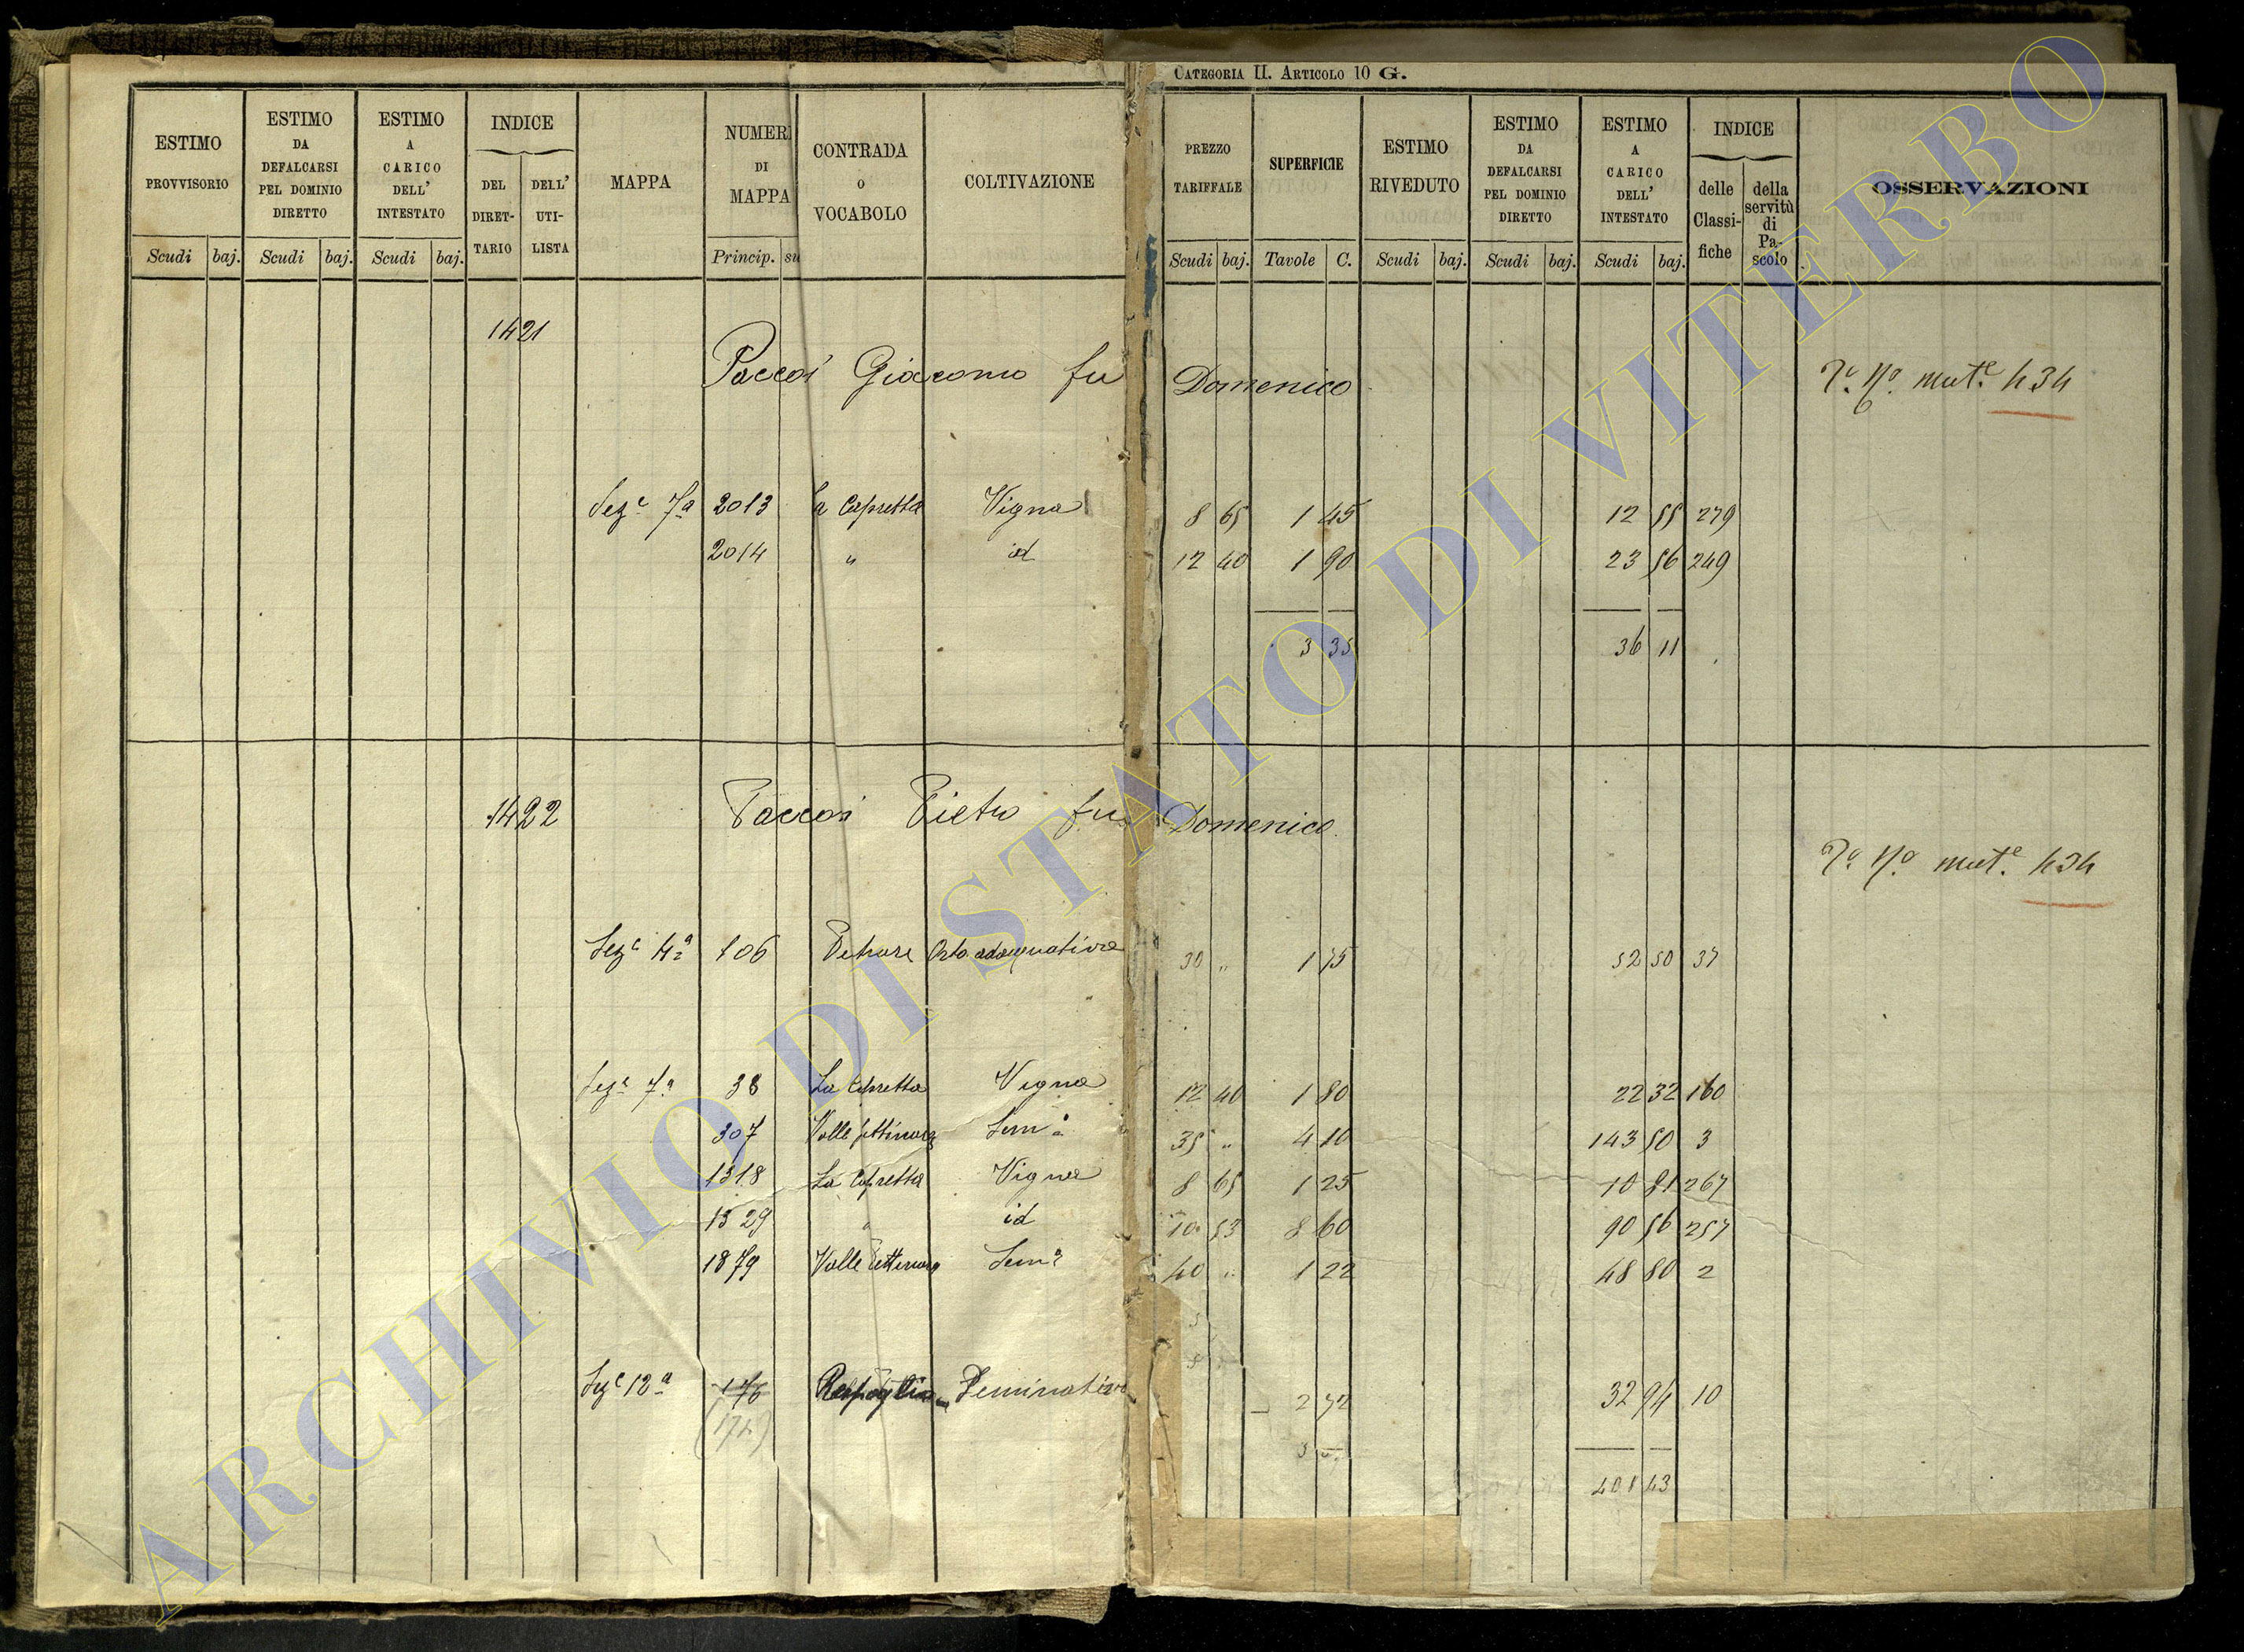 CATEGORIA II. ARTICOLO 10 G.
ESTIMO PROVVISORIO
Scudi baj.
ESTIMO DA DEFALCARSI PEL DOMINIO DIRETTO
Scudi baj.
ESTIMO A CARICO DELL' INTESTATO
Scudi baj.
INDICE
DEL DIRET- TARIO
DELL' UTI- LISTA
MAPPA
NUMERI DI MAPPA
Princip. su
CONTRADA O VOCABOLO
COLTIVAZIONE
PREZZO TARIFFALE
Scudi baj.
SUPERFICIE
Tavole C.
ESTIMO RIVEDUTO
Scudi baj.
ESTIMO DA DEFALCARSI PEL DOMINIO DIRETTO
Scudi baj.
ESTIMO A CARICO DELL' INTESTATO
Scudi baj.
INDICE
delle Classi- fiche
della servitù di Pa- scolo
OSSERVAZIONI
1421
Paccosi Giacomo fu Domenico
mut.e 434
Sez.e 7a 2013 La Capretta Vigna 8 65 1 45 12 55 279
2014 " id 12 40 1 90 23 56 249
3 35 36 11
1422 Paccosi Pietro fu Domenico
mut.e 434
Sez.e 4a 106 Petrare Orto adacquativo 30 " 1 75 52 50 37
Sez.e 7a 38 La Capretta Vigna 12 40 1 80 22 32 160
307 Valle Pettinara Sem.o 35 " 4 10 143 50 3
1318 La Capretta Vigna 8 65 1 25 10 81 267
1529 " id 10 53 8 60 90 56 257
1879 Valle Pettinara Sem.o 40 " 1 22 48 80 2
Sez.e 12a 176 Respoglio Seminativo 2 72 32 94 10
(174)
401 43
ARCHIVIO DI STATO DI VITERBO